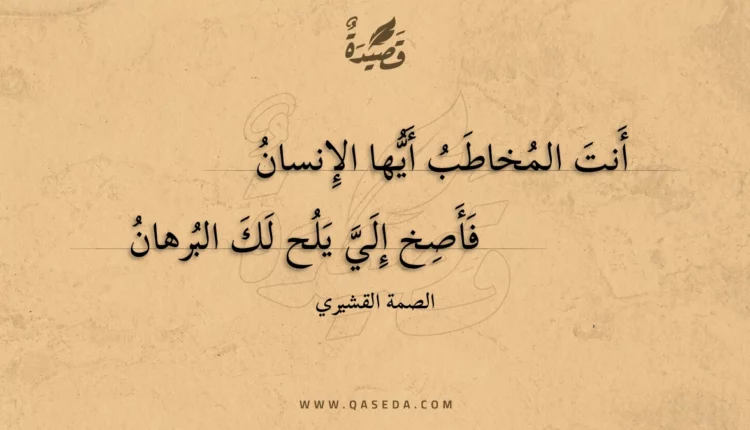 قَصِيْدَةٌ
أَنتَ المُخاطَبُ أَيُّها الإِنسانُ
فَأَصِخ إِلَيَّ يَلُح لَكَ البُرهانُ
الصمة القشيري
WWW.QASEDA.COM